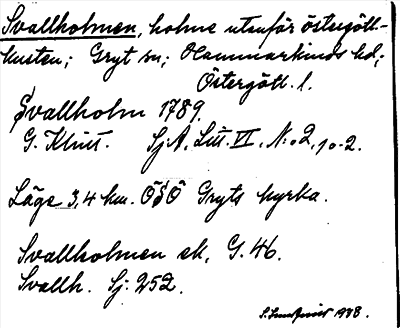 Svallholmen, holme utanför östergötl.-
kusten; Gryt sn; Hammarkinds hd;
Östergötl. l.
Svallholm 1789.
G. Klint. SjA, Litt. VI, N:o 2, 10-2.
Läge 3,4 km. ÖSÖ Gryts kyrka.
Svallholmen ek. G. 46.
Svallh. Sj. 252.
1938.